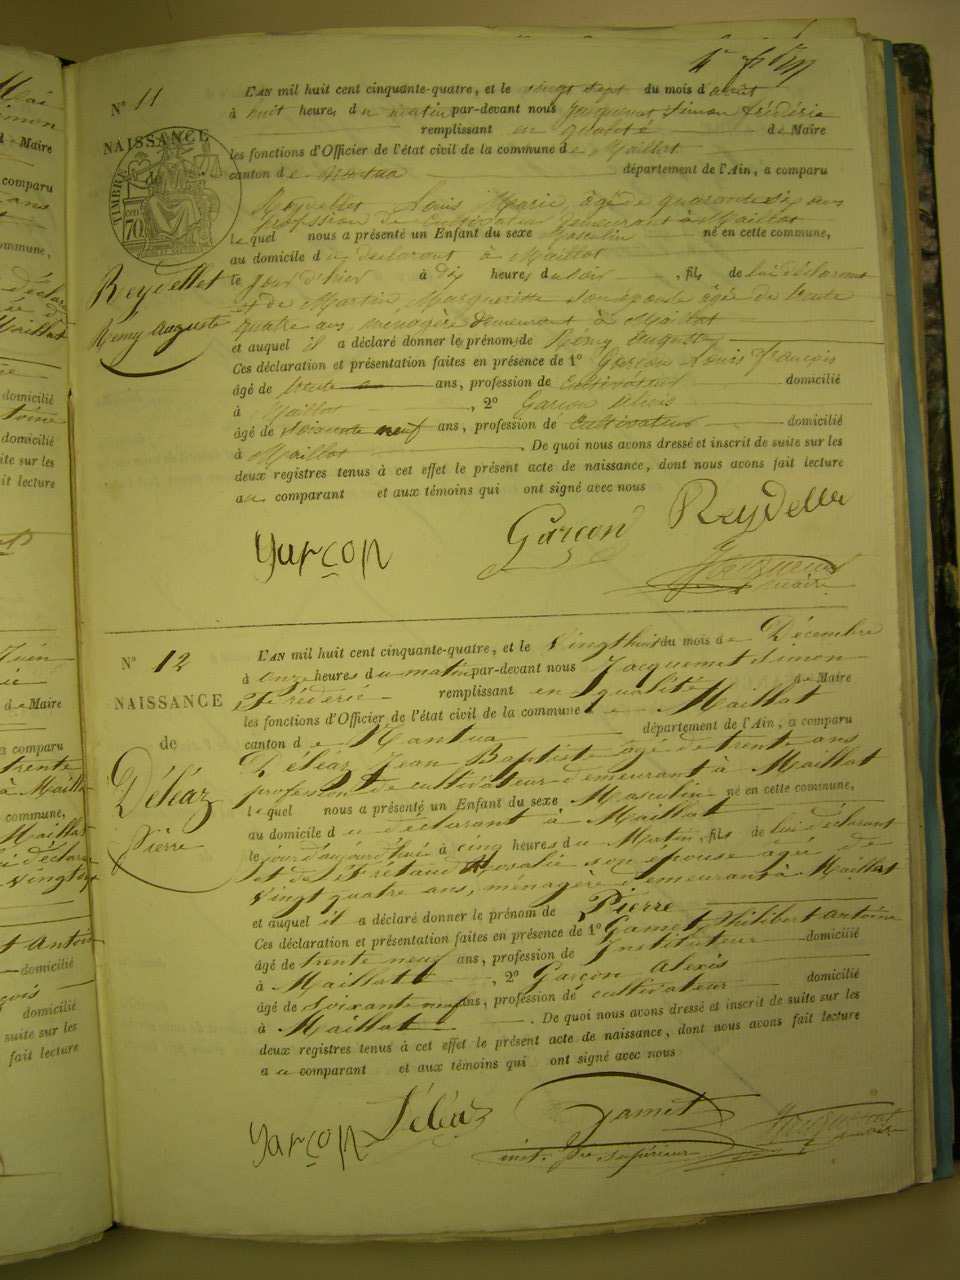 N° 11
NAISSANCE
de
TIMBRE
70
Reydellet
Rémy Auguste
L'AN mil huit cent cinquante-quatre, et le vingt sept du mois d'août
à huit heures du matin par-devant nous Jacquemet Simon Frédéric
remplissant en qualité de Maire
les fonctions d'Officier de l'état civil de la commune de Maillat
canton de Nantua département de l'Ain, a comparu
Reydellet Louis Marie, âgé de quarante six ans
profession de cultivateur demeurant à Maillat
lequel nous a présenté un Enfant du sexe Masculin né en cette commune,
au domicile du déclarant à Maillat
le jour d'hier à dix heures du soir, fils de lui déclarant
et de Martin Marguerite son épouse âgée de trente
quatre ans ménagère demeurant à Maillat
et auquel il a déclaré donner le prénoms de Rémy Auguste
Ces déclaration et présentation faites en présence de 1° Garçon Louis François
âgé de trente ans, profession de cultivateur domicilié
à Maillat, 2° Garçon Alexis
âgé de soixante neuf ans, profession de cultivateur domicilié
à Maillat. De quoi nous avons dressé et inscrit de suite sur les
deux registres tenus à cet effet le présent acte de naissance, dont nous avons fait lecture
au comparant et aux témoins qui ont signé avec nous
Garçon Garçon Reydellet
Jacquemet
maire
N° 12
NAISSANCE
de
Déléaz
Pierre
L'AN mil huit cent cinquante-quatre, et le vingt huit du mois de Décembre
à onze heures du matin par-devant nous Jacquemet Simon
Frédéric remplissant en qualité de Maire
les fonctions d'Officier de l'état civil de la commune de Maillat
canton de Nantua département de l'Ain, a comparu
Déléaz Jean Baptiste agé de trente ans
profession de cultivateur demeurant à Maillat
lequel nous a présenté un Enfant du sexe Masculin né en cette commune,
au domicile du déclarant à Maillat
le jour d'aujourd'hui à cinq heures du Matin, fils de lui déclarant
et de Rosalie son épouse âgée de
vingt quatre ans, ménagère demeurant à Maillat
et auquel il a déclaré donner le prénom de Pierre
Ces déclaration et présentation faites en présence de 1° Gamet Philibert Antoine
âgé de trente neuf ans, profession de Instituteur domicilié
à Maillat, 2° Garçon Alexis
âgé de soixante neuf ans, profession de cultivateur domicilié
à Maillat. De quoi nous avons dressé et inscrit de suite sur les
deux registres tenus à cet effet le présent acte de naissance, dont nous avons fait lecture
au comparant et aux témoins qui ont signé avec nous
Garçon Déléaz Gamet Jacquemet
inst. supérieur maire